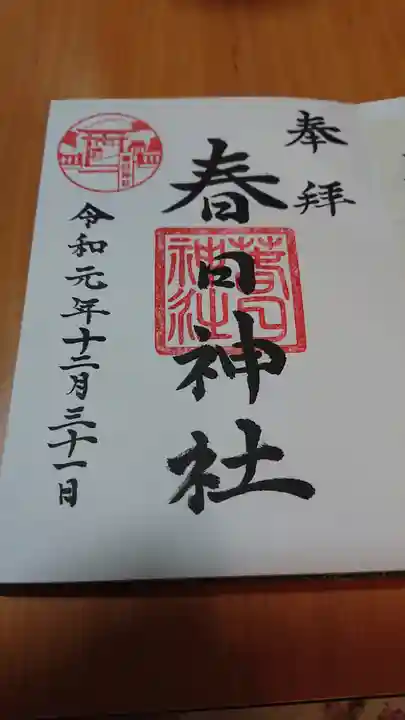 奉拝
春日神社
春日神社
令和元年十二月三十一日